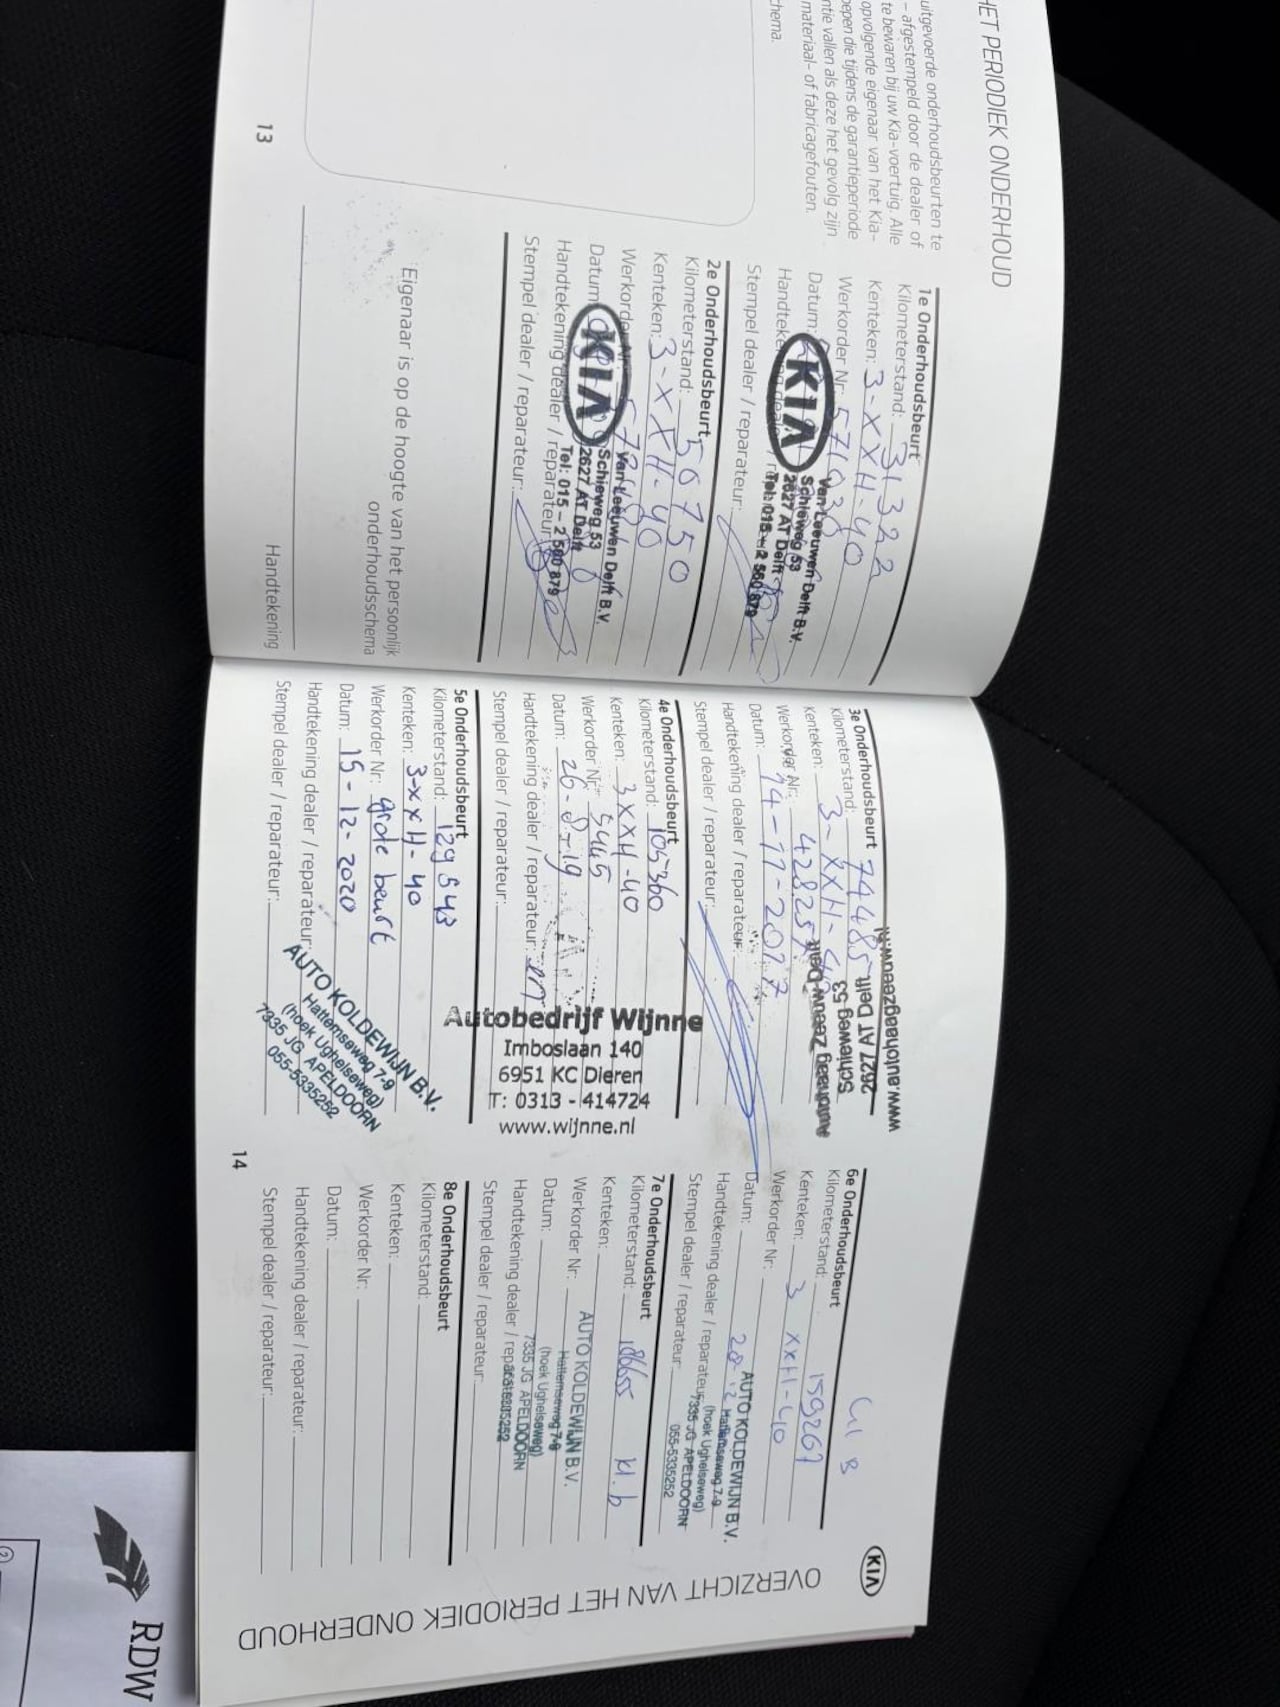 HET PERIODIEK ONDERHOUD
uitgevoerde onderhoudsbeurten te
– afgestempeld door de dealer of
te bewaren bij uw Kia-voertuig. Alle
opvolgende eigenaar van het Kia-
epen die tijdens de garantieperiode
ntie vallen als deze het gevolg zijn
materiaal- of fabricagefouten.
chema.
1e Onderhoudsbeurt
Kilometerstand: 31322
Kenteken: 3-XXH-40
Werkorder Nr:
Datum:
Handtekening dealer /
Stempel dealer / reparateur:
KIA
Van Leeuwen Delft B.V.
Schieweg 53
2627 AT Delft
Tel: 015 – 2 560 879
2e Onderhoudsbeurt
Kilometerstand: 50750
Kenteken: 3-XXH-40
Werkorder Nr:
Datum:
Handtekening dealer / reparateur:
Stempel dealer / reparateur:
KIA
Van Leeuwen Delft B.V.
Schieweg 53
2627 AT Delft
Tel: 015 – 2 560 879
Eigenaar is op de hoogte van het persoonlijk
onderhoudsschema
Handtekening
13
3e Onderhoudsbeurt
Kilometerstand: 74485
Kenteken: 3-XXH-40
Werkorder Nr:
Datum: 14-11-2017
Handtekening dealer / reparateur:
Stempel dealer / reparateur:
Schieweg 53
2627 AT Delft
www.autohaagzeeuw.nl
4e Onderhoudsbeurt
Kilometerstand: 105360
Kenteken: 3XXH-40
Werkorder Nr: 5445
Datum: 26-8-19
Handtekening dealer / reparateur:
Stempel dealer / reparateur:
Autobedrijf Wijnne
Imboslaan 140
6951 KC Dieren
T: 0313 - 414724
www.wijnne.nl
5e Onderhoudsbeurt
Kilometerstand: 129543
Kenteken: 3-XXH-40
Werkorder Nr: grote beurt
Datum: 15-12-2020
Handtekening dealer / reparateur:
Stempel dealer / reparateur:
AUTO KOLDEWIJN B.V.
Hattemseweg 7-9
(hoek Ughelseweg)
7335 JG APELDOORN
055-5335252
14
6e Onderhoudsbeurt
Kilometerstand: 159267
Kenteken: 3 XXH-40
Werkorder Nr:
Datum:
Handtekening dealer / reparateur:
Stempel dealer / reparateur:
AUTO KOLDEWIJN B.V.
Hattemseweg 7-9
(hoek Ughelseweg)
7335 JG APELDOORN
055-5335252
7e Onderhoudsbeurt
Kilometerstand: 186655 kl.b
Kenteken:
Werkorder Nr:
Datum:
Handtekening dealer / reparateur:
Stempel dealer / reparateur:
AUTO KOLDEWIJN B.V.
Hattemseweg 7-9
(hoek Ughelseweg)
7335 JG APELDOORN
055-5335252
8e Onderhoudsbeurt
Kilometerstand:
Kenteken:
Werkorder Nr:
Datum:
Handtekening dealer / reparateur:
Stempel dealer / reparateur:
KIA
OVERZICHT VAN HET PERIODIEK ONDERHOUD
RDW
2